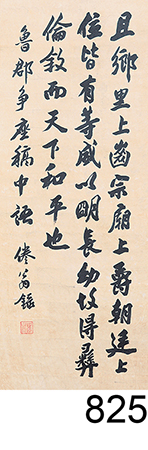 且鄉里上齒宗廟上爵朝廷上
位皆有等威以明長幼故得彝
倫敘而天下和平也
魯郡爭座稿中語 倦翁錄
825